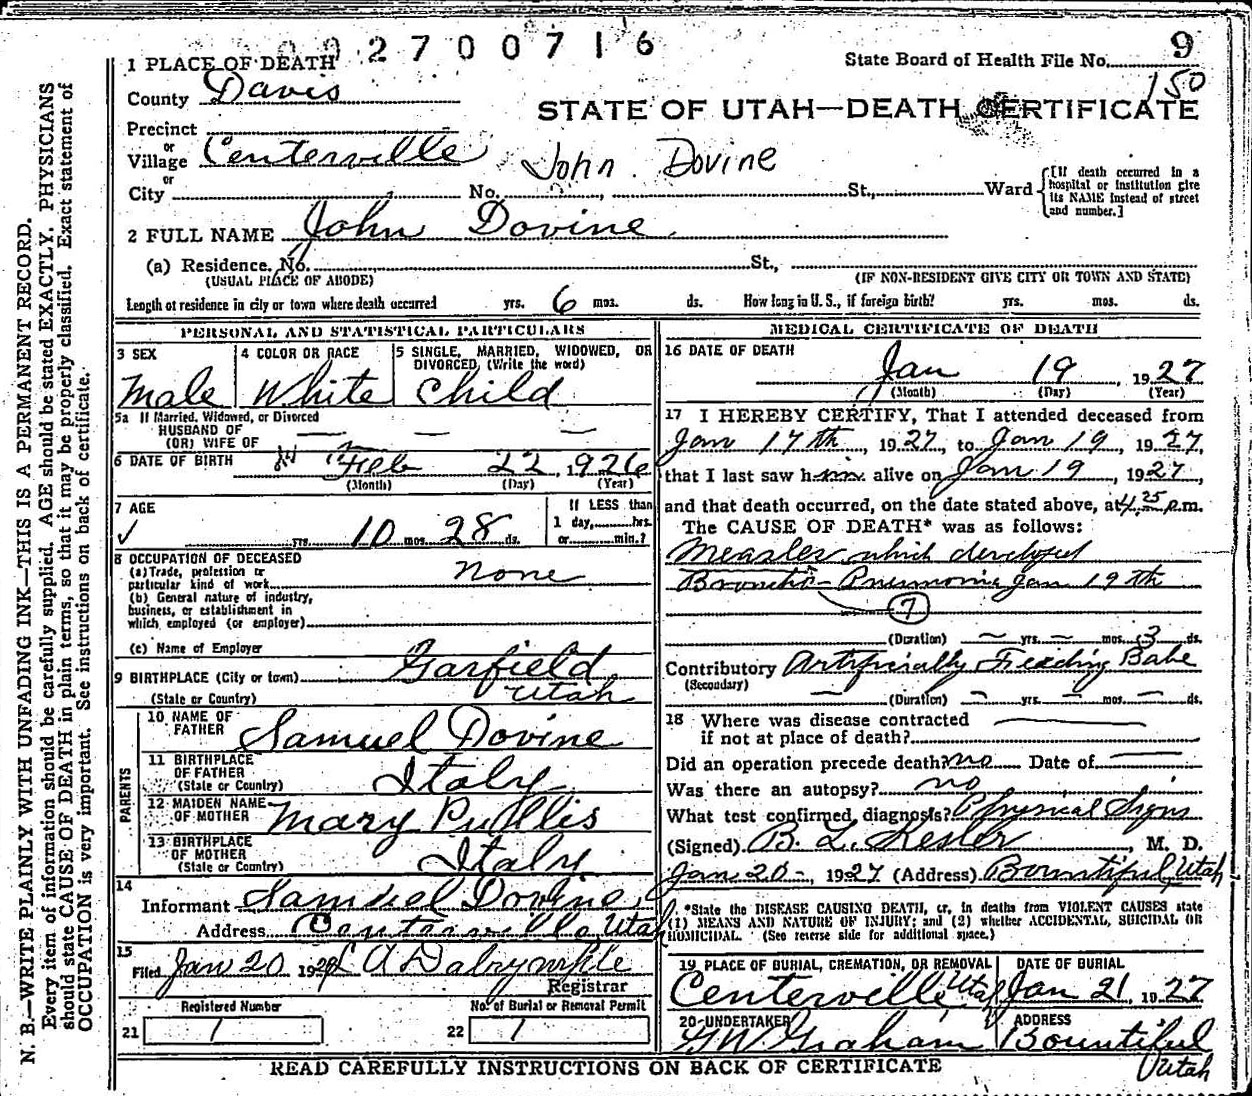 2700716
9
1 PLACE OF DEATH
State Board of Health File No.
150
County Davis
STATE OF UTAH—DEATH CERTIFICATE
Precinct
or
Village Centerville
John Dovine
or
City No. St., Ward
[If death occurred in a
hospital or institution give
its NAME instead of street
and number.]
2 FULL NAME John Dovine
(a) Residence. No. St.,
(USUAL PLACE OF ABODE) (IF NON-RESIDENT GIVE CITY OR TOWN AND STATE)
Length of residence in city or town where death occurred yrs. 6 mos. ds. How long in U. S., if foreign birth? yrs. mos. ds.
PERSONAL AND STATISTICAL PARTICULARS
3 SEX
Male
4 COLOR OR RACE
White
5 SINGLE, MARRIED, WIDOWED, OR
DIVORCED, (Write the word)
Child
5a If Married, Widowed, or Divorced
HUSBAND OF — — —
(OR) WIFE OF
6 DATE OF BIRTH Feb 22, 1926
(Month) (Day) (Year)
7 AGE
✓ yrs. 10 mos. 28 ds.
If LESS than
1 day, hrs.
or min.?
8 OCCUPATION OF DECEASED
(a) Trade, profession or
particular kind of work none
(b) General nature of industry,
business, or establishment in
which employed (or employer)
(c) Name of Employer
9 BIRTHPLACE (City or town) Garfield
(State or Country) Utah
PARENTS
10 NAME OF
FATHER Samuel Dovine
11 BIRTHPLACE
OF FATHER
(State or Country) Italy
12 MAIDEN NAME
OF MOTHER Mary Pullis
13 BIRTHPLACE
OF MOTHER
(State or Country) Italy
14
Informant Samuel Dovine
Address Centerville, Utah
15
Filed Jan 20 1927 L A Dalrymple
Registrar
Registered Number
21 1
No. of Burial or Removal Permit
22 1
MEDICAL CERTIFICATE OF DEATH
16 DATE OF DEATH
Jan 19, 1927
(Month) (Day) (Year)
17 I HEREBY CERTIFY, That I attended deceased from
Jan 17th, 1927, to Jan 19, 1927,
that I last saw him alive on Jan 19, 1927,
and that death occurred, on the date stated above, at 4.25 p.m.
The CAUSE OF DEATH* was as follows:
Measles which developed
Broncho-Pneumonia Jan 19th
7
(Duration) — yrs. — mos. 3 ds.
Contributory Artificially Feeding Babe
(Secondary)
— (Duration) — yrs. — mos. — ds.
18 Where was disease contracted
if not at place of death?
Did an operation precede death? no Date of —
Was there an autopsy? no
What test confirmed diagnosis? Physical Signs
(Signed) B. L. Kesler, M. D.
Jan 20-, 1927 (Address) Bountiful, Utah
*State the DISEASE CAUSING DEATH, or, in deaths from VIOLENT CAUSES state
(1) MEANS AND NATURE OF INJURY; and (2) whether ACCIDENTAL, SUICIDAL OR
HOMICIDAL. (See reverse side for additional space.)
19 PLACE OF BURIAL, CREMATION, OR REMOVAL
Centerville Utah
DATE OF BURIAL
Jan 21, 1927
20 UNDERTAKER
GW Graham
ADDRESS
Bountiful
Utah
READ CAREFULLY INSTRUCTIONS ON BACK OF CERTIFICATE
N. B.—WRITE PLAINLY WITH UNFADING INK—THIS IS A PERMANENT RECORD.
Every item of information should be carefully supplied. AGE should be stated EXACTLY. PHYSICIANS
should state CAUSE OF DEATH in plain terms, so that it may be properly classified. Exact statement of
OCCUPATION is very important. See instructions on back of certificate.